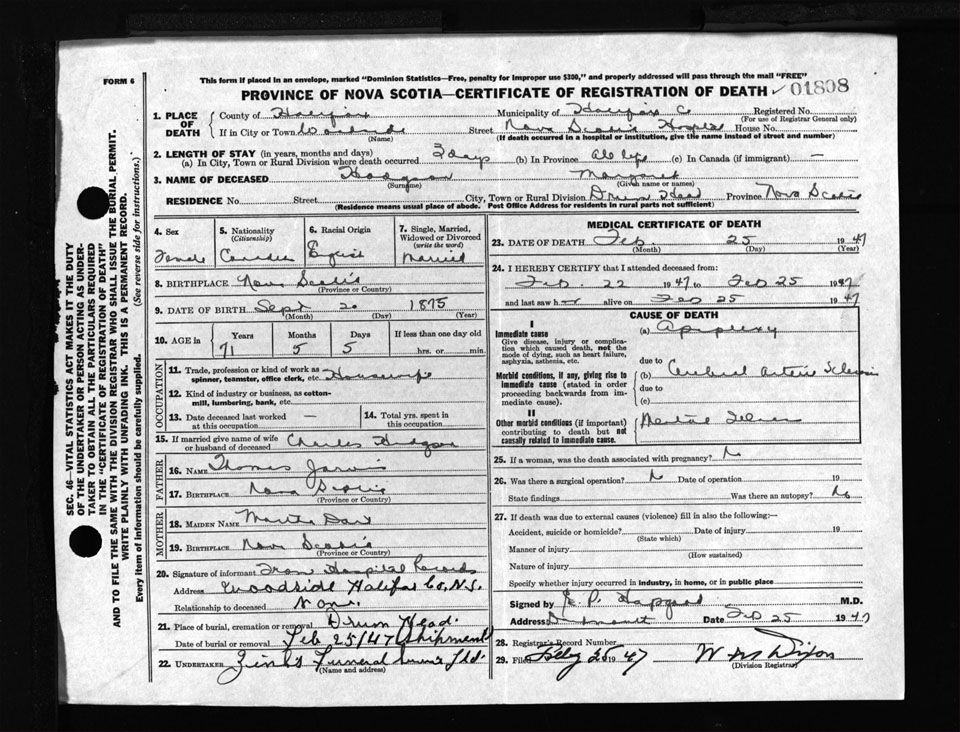 FORM 6
This form if placed in an envelope, marked "Dominion Statistics—Free, penalty for improper use $300," and properly addressed will pass through the mail "FREE"
PROVINCE OF NOVA SCOTIA—CERTIFICATE OF REGISTRATION OF DEATH 01808
1. PLACE OF DEATH
County of Halifax Municipality of Halifax Co Registered No.
(For use of Registrar General only)
If in City or Town Woodside Street Nova Scotia Hospital House No.
(Name) (If death occurred in a hospital or institution, give the name instead of street and number)
2. LENGTH OF STAY (in years, months and days)
(a) In City, Town or Rural Division where death occurred 3 days (b) In Province all life (c) In Canada (if immigrant) —
3. NAME OF DECEASED Hodgson Margaret
(Surname) (Given name or names)
RESIDENCE No. Street City, Town or Rural Division Drum Head Province Nova Scotia
(Residence means usual place of abode. Post Office Address for residents in rural parts not sufficient)
4. Sex Female
5. Nationality (Citizenship) Canadian
6. Racial Origin English
7. Single, Married, Widowed or Divorced (write the word) Married
8. BIRTHPLACE Nova Scotia
(Province or Country)
9. DATE OF BIRTH Sept 20 1875
(Month) (Day) (Year)
10. AGE in Years Months Days If less than one day old
71 5 5 hrs. or min.
OCCUPATION
11. Trade, profession or kind of work as spinner, teamster, office clerk, etc. Housewife
12. Kind of industry or business, as cotton-mill, lumbering, bank, etc.
13. Date deceased last worked at this occupation —
14. Total yrs. spent in this occupation
15. If married give name of wife or husband of deceased Charles Hodgson
FATHER
16. NAME Thomas Jarvis
17. BIRTHPLACE Nova Scotia
(Province or Country)
MOTHER
18. MAIDEN NAME
19. BIRTHPLACE Nova Scotia
(Province or Country)
20. Signature of informant From Hospital Records
Address Woodside Halifax Co. N.S.
Relationship to deceased None
21. Place of burial, cremation or removal Drum Head.
Date of burial or removal Feb 25/47 (Shipment)
22. UNDERTAKER Zink's Funeral Ltd.
(Name and address)
MEDICAL CERTIFICATE OF DEATH
23. DATE OF DEATH Feb. 25 1947
(Month) (Day) (Year)
24. I HEREBY CERTIFY that I attended deceased from:
Feb. 22 1947 to Feb 25 1947
and last saw her alive on Feb 25 1947
CAUSE OF DEATH
I
Immediate cause (a) Apoplexy
Give disease, injury or complication which caused death, not the mode of dying, such as heart failure, asphyxia, asthenia, etc.
due to
Morbid conditions, if any, giving rise to immediate cause (stated in order proceeding backwards from immediate cause).
(b) Cerebral Arterio Sclerosis
due to
(c)
II
Other morbid conditions (if important) contributing to death but not causally related to immediate cause.
25. If a woman, was the death associated with pregnancy? No
26. Was there a surgical operation? No Date of operation 19
State findings Was there an autopsy? No
27. If death was due to external causes (violence) fill in also the following:—
Accident, suicide or homicide? Date of injury 19
(State which)
Manner of injury
(How sustained)
Nature of injury
Specify whether injury occurred in industry, in home, or in public place
Signed by E. P. Hapgood M.D.
Address Dartmouth Date Feb 25 1947
28. Registrar's Record Number
29. Filed Feby 25 1947 W Dixon
(Division Registrar)
SEC. 46—VITAL STATISTICS ACT MAKES IT THE DUTY
OF THE UNDERTAKER OR PERSON ACTING AS UNDER-
TAKER TO OBTAIN ALL THE PARTICULARS REQUIRED
IN THE "CERTIFICATE OF REGISTRATION OF DEATH"
AND TO FILE THE SAME WITH THE DIVISION REGISTRAR WHO SHALL ISSUE THE BURIAL PERMIT.
WRITE PLAINLY WITH UNFADING INK. THIS IS A PERMANENT RECORD.
Every item of information should be carefully supplied. (See reverse side for instructions.)